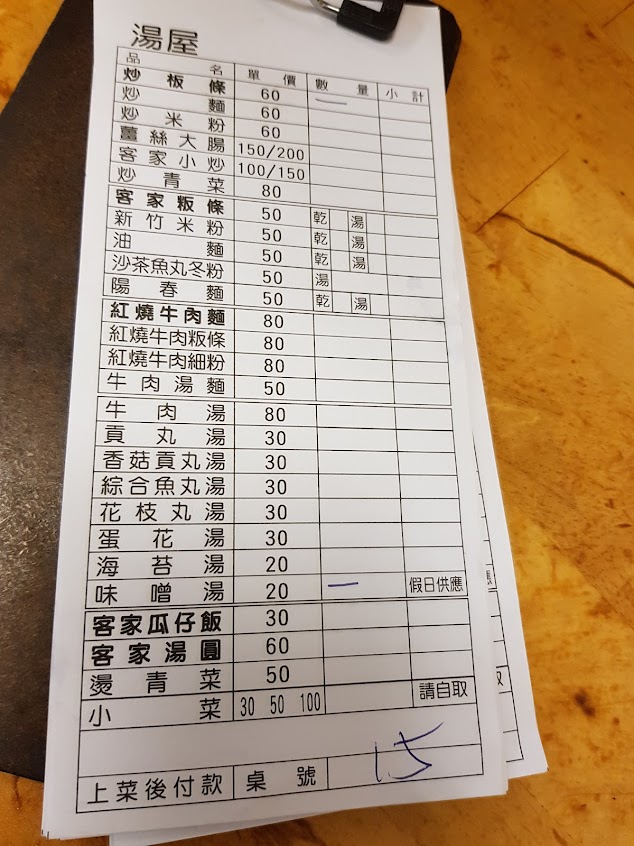 湯屋
品名 單價 數量 小計
炒板條 60 一
炒麵 60
炒米粉 60
薑絲大腸 150/200
客家小炒 100/150
炒青菜 80
客家粄條 50 乾 湯
新竹米粉 50 乾 湯
油麵 50 乾 湯
沙茶魚丸冬粉 50 湯
陽春麵 50 乾 湯
紅燒牛肉麵 80
紅燒牛肉粄條 80
紅燒牛肉細粉 80
牛肉湯麵 50
牛肉湯 80
貢丸湯 30
香菇貢丸湯 30
綜合魚丸湯 30
花枝丸湯 30
蛋花湯 30
海苔湯 20
味噌湯 20 一 假日供應
客家瓜仔飯 30
客家湯圓 60
燙青菜 50
小菜 30 50 100 請自取
上菜後付款 桌號 15